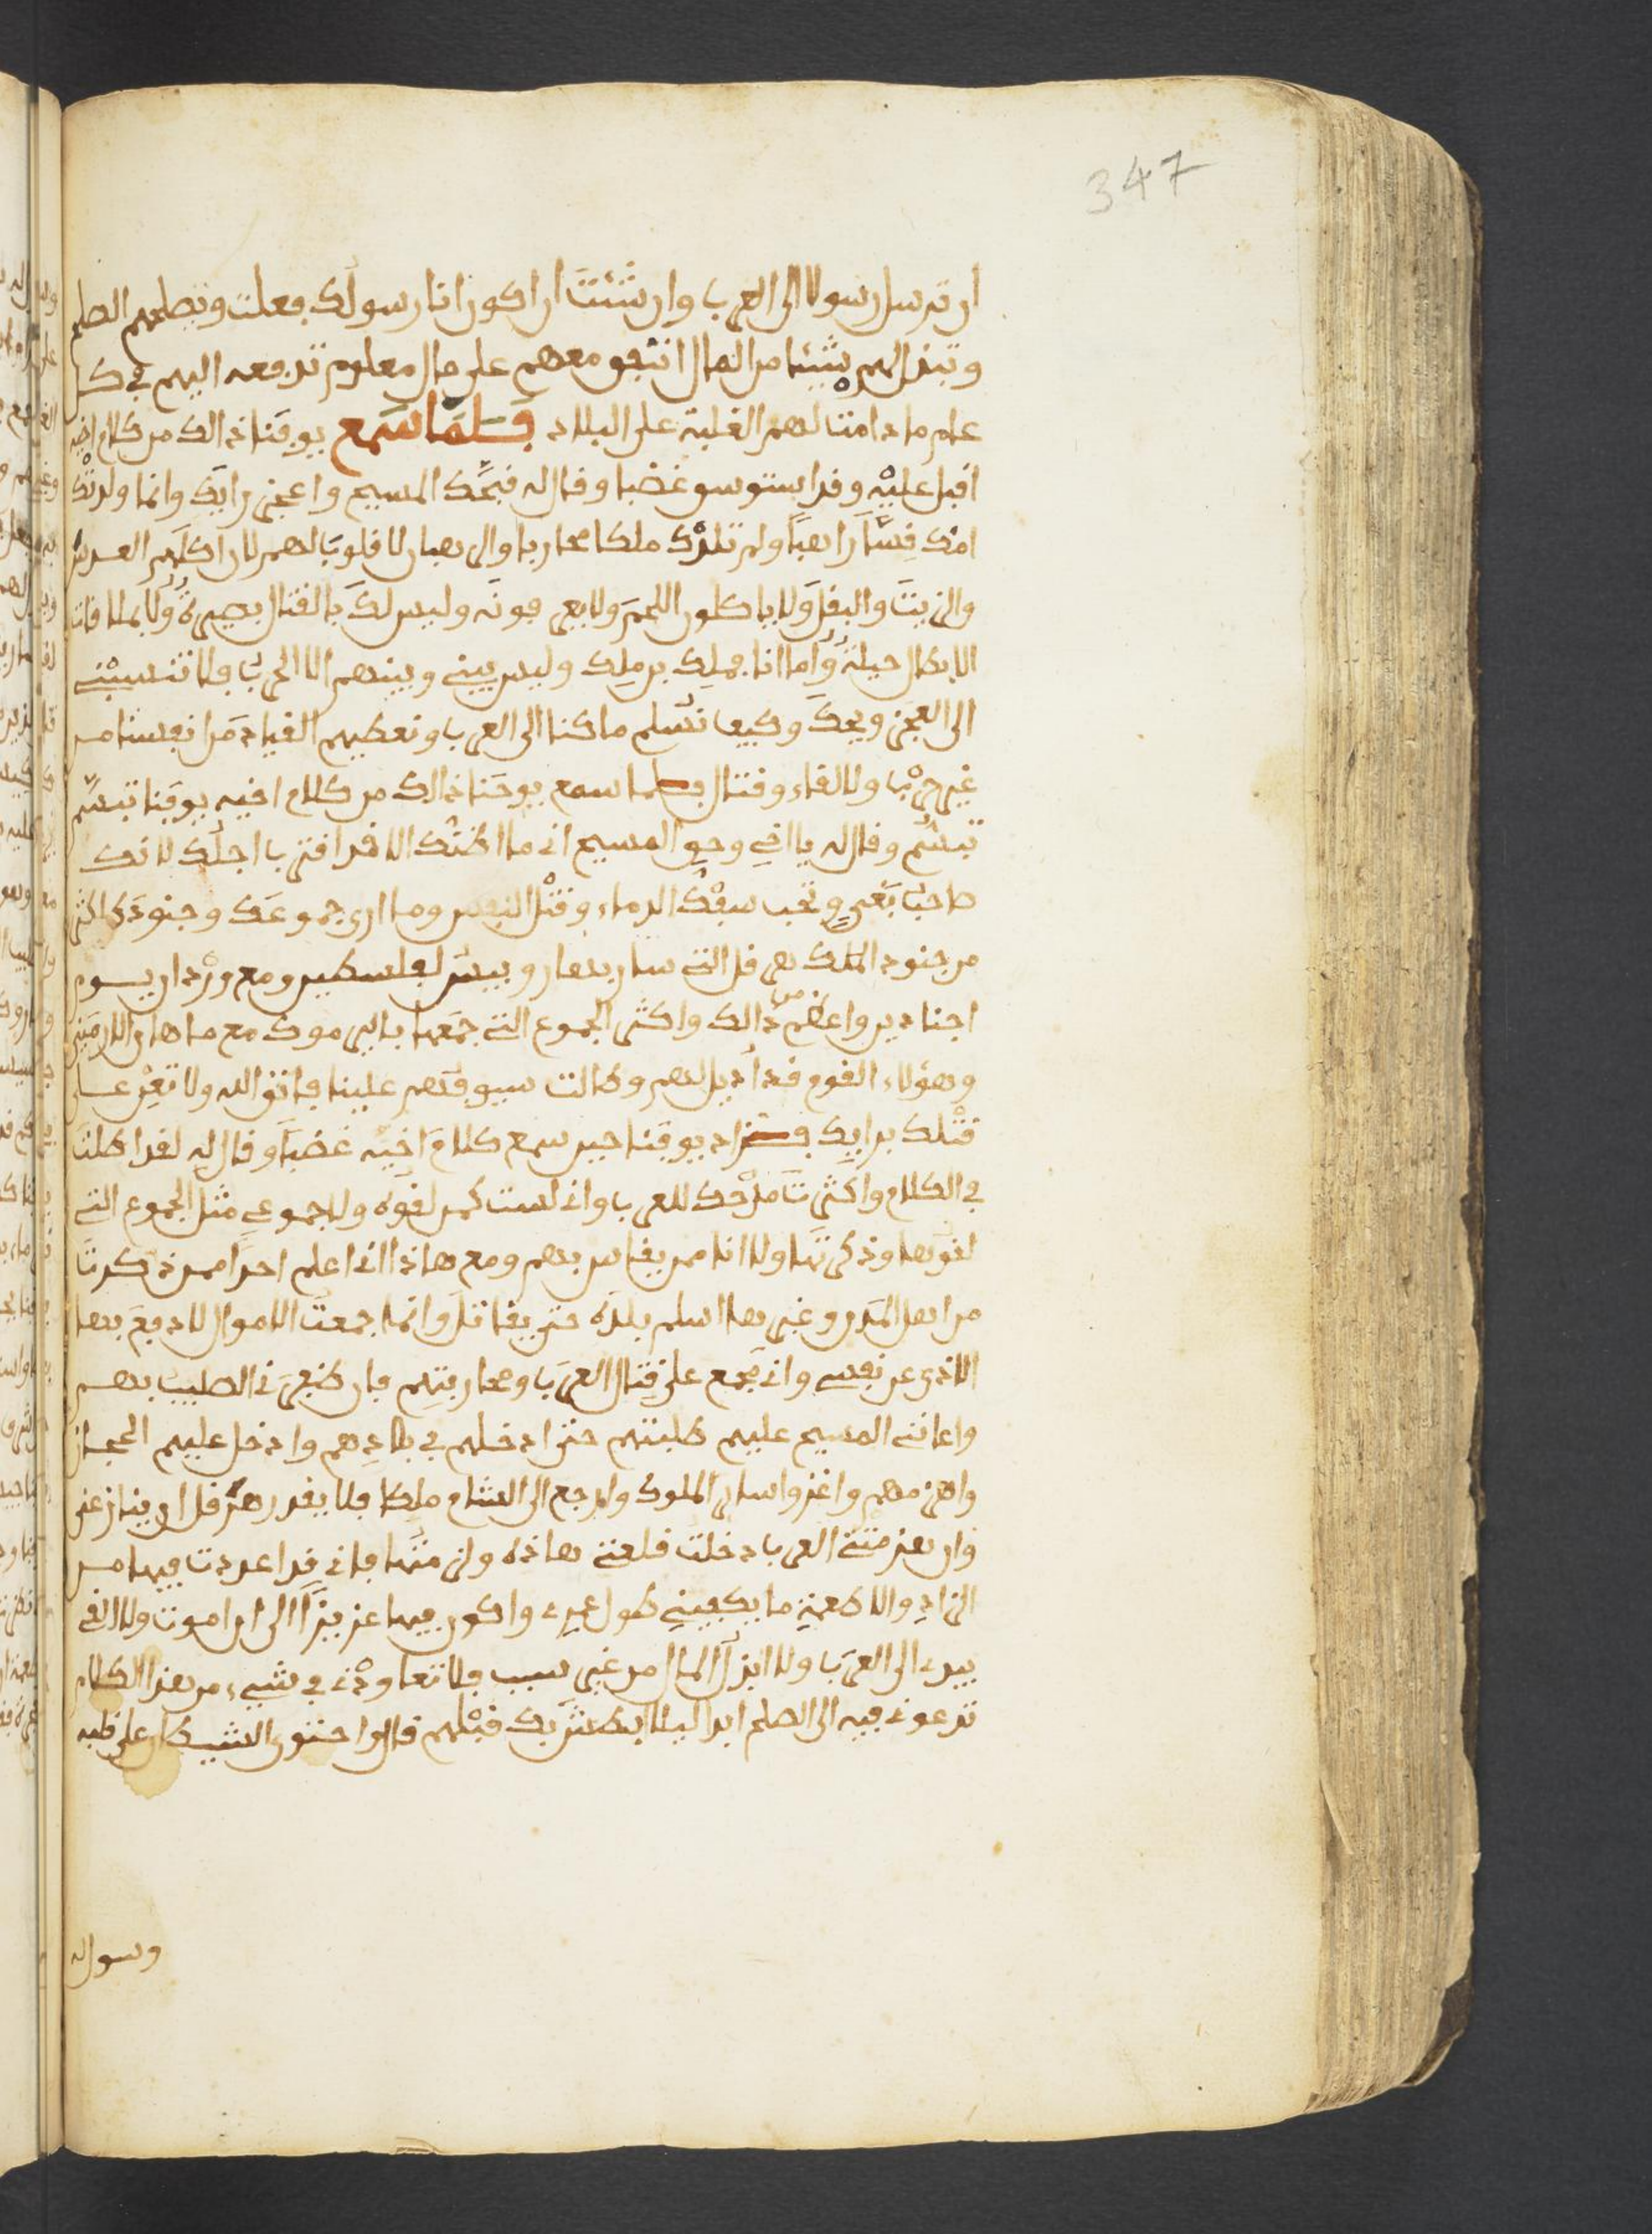 347
ان ترسل رسولا الى العرب وان شئت ان اكون انا رسولك فعلت وتطلبهم الصلح
وتبذل لهم شيئا من المال انتفو معهم على مال معلوم تدفعه اليهم في كل
عام ما دامت لهم الغلبة على البلاد فلما سمع يوقنا ذالك من كلام اخيه
اقبل عليه وقد استوسو غضبا وقال له قبحك المسيح واعجز رايك وانما ولدتك
امك قسا راهبا ولم تلدك ملكا محاربا والرهبان لا قلوب لهم لان اكلهم العدس
والزيت والبقل ولا ياكلون اللحم ولا يعرفونه وليس لك بالقتال بصيرة ولا بملاقات
الابطال حيلة واما انا فملك بن ملك وليس بيني وبينهم الا الحرب فلا تنسبني
الى العجز ويحك وكيف نسلم ملكنا الى العرب ونعطيهم القياد من انفسنا من
غير حرب ولا لقاء وقتال فلما سمع يوحنا ذالك من كلام اخيه يوقنا تبسم
تبسم وقال له يا اخي وحق المسيح اني ما اظنك الا قد اقترب اجلك لانك
صاحب بغي وتحب سفك الدماء وقتل النفس وما ارى جموعك وجنودك اكثر
من جنود الملك هرقل التي سار بها روبيس لفلسطين ومع وردان يوم
اجنادين واعظم من ذالك واكثر الجموع التي جمعها باليرموك مع ماهان الارمني
وهؤلاء القوم قد اديل لهم وطالت سيوفهم علينا فاتق الله ولا تعز عسا
قتلك برايك فزاد يوقنا حين سمع كلام اخيه غضبا وقال له لقد اطلت
في الكلام واكثرت مدحك للعرب واني لست كمن لقوه ولا جموعي مثل الجموع التي
لقوها وذكرتها ولا انا ممن يقاس بهم ومع هاذا اني اعلم احدا ممن ذكرت
من اهل المدن وغيرها اسلم بلده حتى يقاتل وانما جمعت الاموال لادفع بها
الاذى عن نفسي واني مجمع على قتال العرب ومحاربتهم فان ظفرني الصليب بهم
واعانني المسيح عليهم طلبتهم حتى ادخلهم في بلادهم وادخل عليهم الحجاز
واهزمهم واغزوا سائر الملوك وارجع الى الشام ملكا فلا يقدر هرقل ان ينازعني
وان هزمتني العرب دخلت قلعتي هاذه ولزمتها فاني قد اعددت فيها من
الزاد والاطعمة ما يكفيني طول عمري واكون فيها عزيزا الى ان اموت ولا القي
بيدي الى العرب ولا ابذل المال من غير سبب فلا تعاودني في شيء من هذا الكلام
تدعوني فيه الى الصلح ابدا ليلا ابطش بك قبلهم قال واحتوى الشيطان على قلبه
وسول له